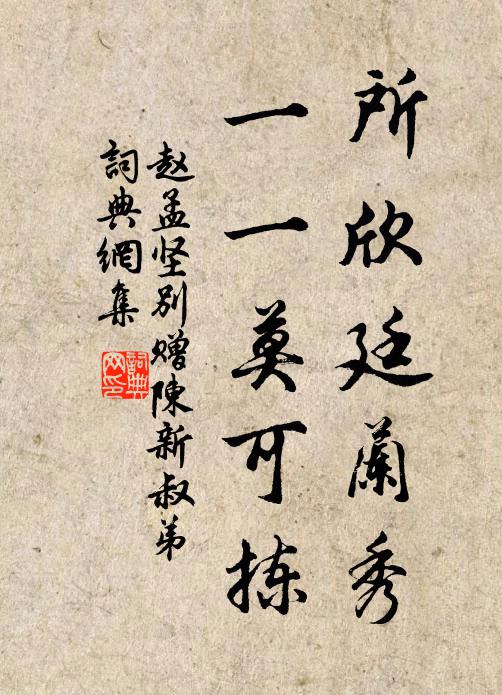 所欣廷蘭秀
一一莫可拣
赵孟坚別赠陳新叔弟
詞典網集
詞典网印